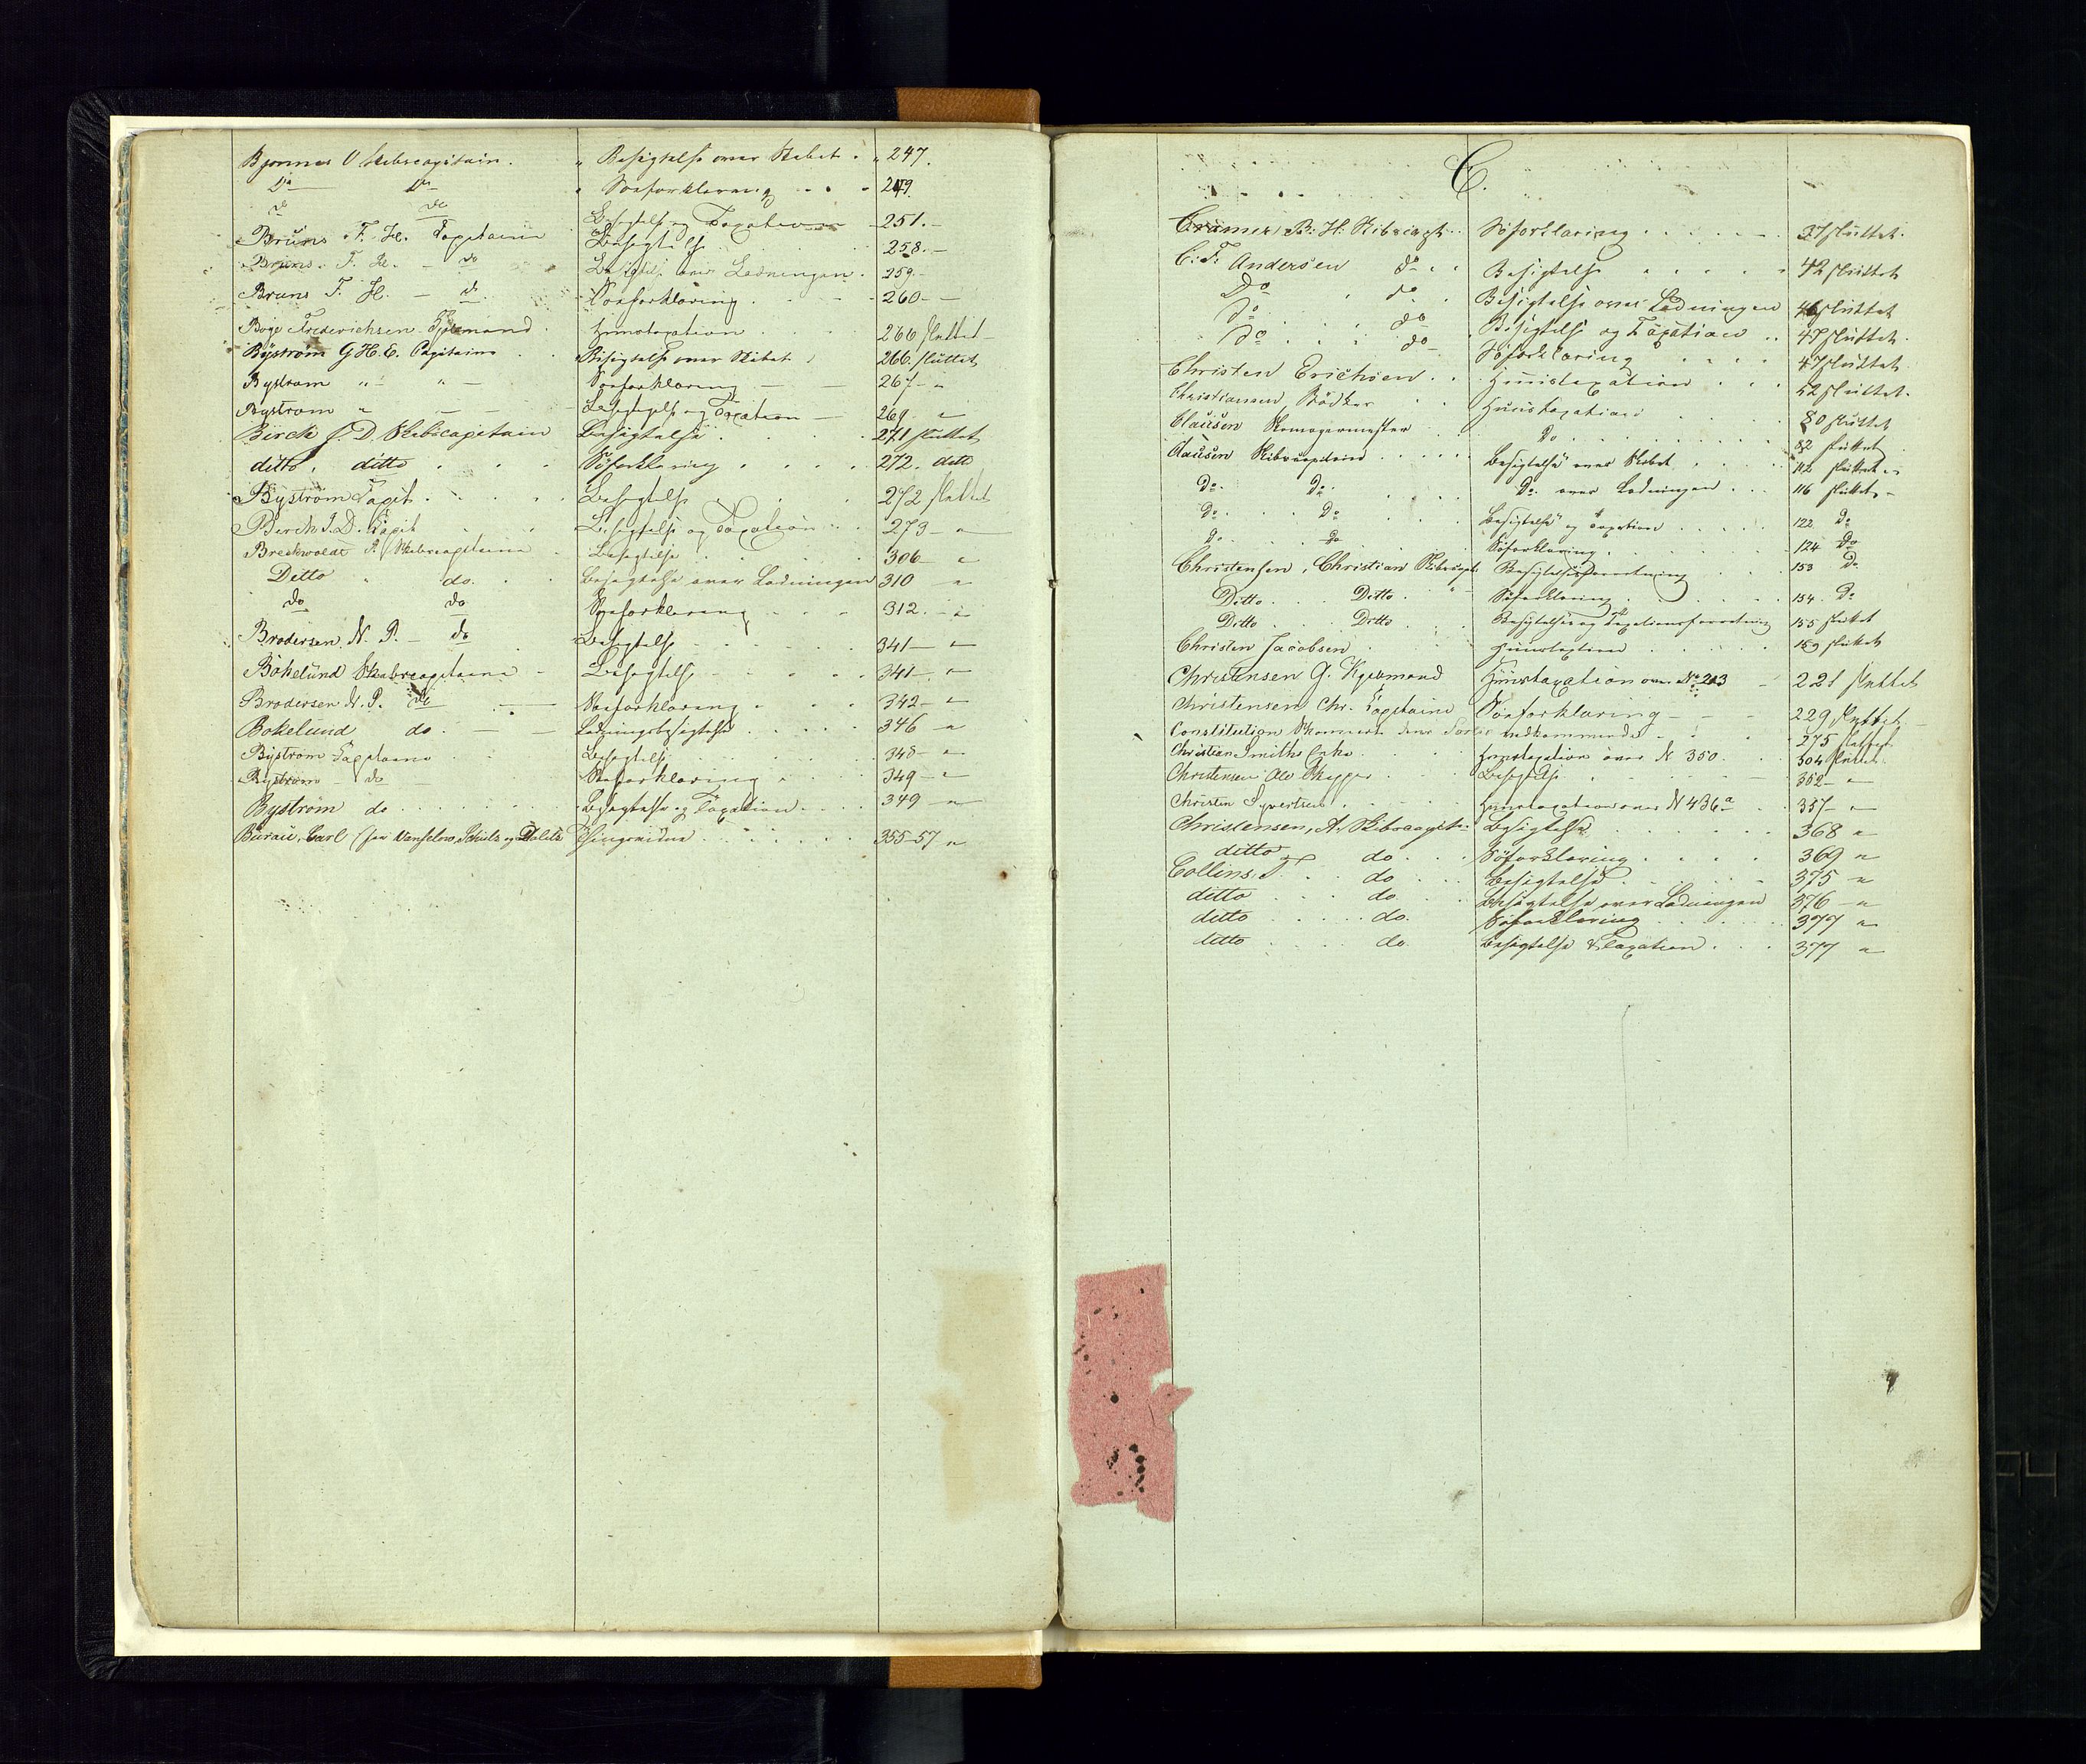 Bjonnes O Skibscapitain. " Besigtelse over Skibet . " 247.
Do Do Søeforklaring . . . 249.
do do Besigtelse og Taxation 251. —
Bruns F. H. Capitain Besigtelse 258. —
Bruns. F. H. — do Besigtelse over Ladningen. 259. —
Bruns F. H. — do. Søeforklaring . 260 — —
Boge Frederichsen Huustaxation 260 sluttet
Byström G H. E. Capitaine Besigtelse over Skibet 266. sluttet
Bystrom " — " — Søeforklaring — — 267 — "
Bystrom " — — Besigtigelse og Taxation — 269 "
Birck J. D. Skibscapitain Besigtelse . . . . 271 sluttet
ditto. ditto . . . Søforklaring . . . . 272. ditto
Byström Capit. . . . Besigtelse . . 272 sluttet
Birck J. D. Capit Besigtelse og Taxation . . 273 — —
Breckwoldt P. Skibscapitaine Besigtelse . . 306 — "
Ditto . do. . . Besigtelse over Ladningen 310 "
do do Søeforklaring . . . 312. — "
Brodersen. N. P. — do Besigtelse . . . . 341 — "
Bokelund Skibscapitaine — Besigtelse . . . . 341 — "
Brodersen N. P. do — Søeforklaring . . . 342 — "
Bokelund do. — — Ladningsbesigtelse . . . . 346 "
Byström Capitaine . . Besigtelse . . . 348 — "
Byström — do — Søeforklaring . . 349 — "
Byström do . . . . . . Besigtelse og Taxation . . . . 349 — "
Burau, Carl (for Vanselow, Schulz og Thingsvidne . . . . . . 355-57 "
C.
Cramer B: H: Skibscapt. . Søforklaring . . . . . 37 sluttet.
C: F: Andersen do . . Besigtelse . . . . . 42 sluttet
Do . do . Besigtelse over Ladningen sluttet
do . . . do Besigtelse og Taxation . . 47 sluttet.
do . . . do — Søforklaring . . . . 47 sluttet
Christen Erichsen . . Huustaxation . . . 52 sluttet.
Christiansen Bödker . . Huustaxation . . 80 sluttet
Clausen . . Do . . . . . . . . 82 sluttet
Clausen Skibscapitain . . . . . Besigtelse over Skibet . . . . 112 sluttet. "
Do. Do. . . . . Do. over Ladningen . . . 116 sluttet. —
Do. . . . Do . . . . Besigtelse og Taxation . . . . . 122 Do
Do . . . Do Søforklaring . . . . . . 124 Do
Christensen, Christian Skibscapt. Besigtelsesforretning . . . 153 Do
Ditto . . . Ditto . " Søforklaring . . . . . . 154. Do
Ditto . . . Ditto . . . Besigtelses og Taxationsforretning 155 sluttet
Christen Jacobsen . . . . Huustaxtion . . . . . 159 sluttet
Christensen G. Kjøbmand Huustaxation over No 213 — 221 sluttet
Christensen Chr. Capitaine Søeforklaring — — — 229 sluttet —
Constitution 275 sluttet
Christian Smiths Enke . . . Huustaxation over N 350. . . 304 sluttet.
Christensen Ole Skipper . . . Besigtelse . . . . . . 352 — "
Christen Syvertsen . . . . . Huustaxation over N 436 a . . 357 — "
Christensen, A. Skibscapit: Besigtelse . . . . . . 368 "
ditto do . . . Søforklaring . . . . . 369 "
Collins. J. . . do . . . Besigtelse . . . . . . 375 "
ditto . . . do . . . Besigtelse over Ladningen 376 — "
ditto . . . . . do. Søforklaring . . . . . 377 "
ditto . . . . do. Besigtelse & Taxation . . . 377 "